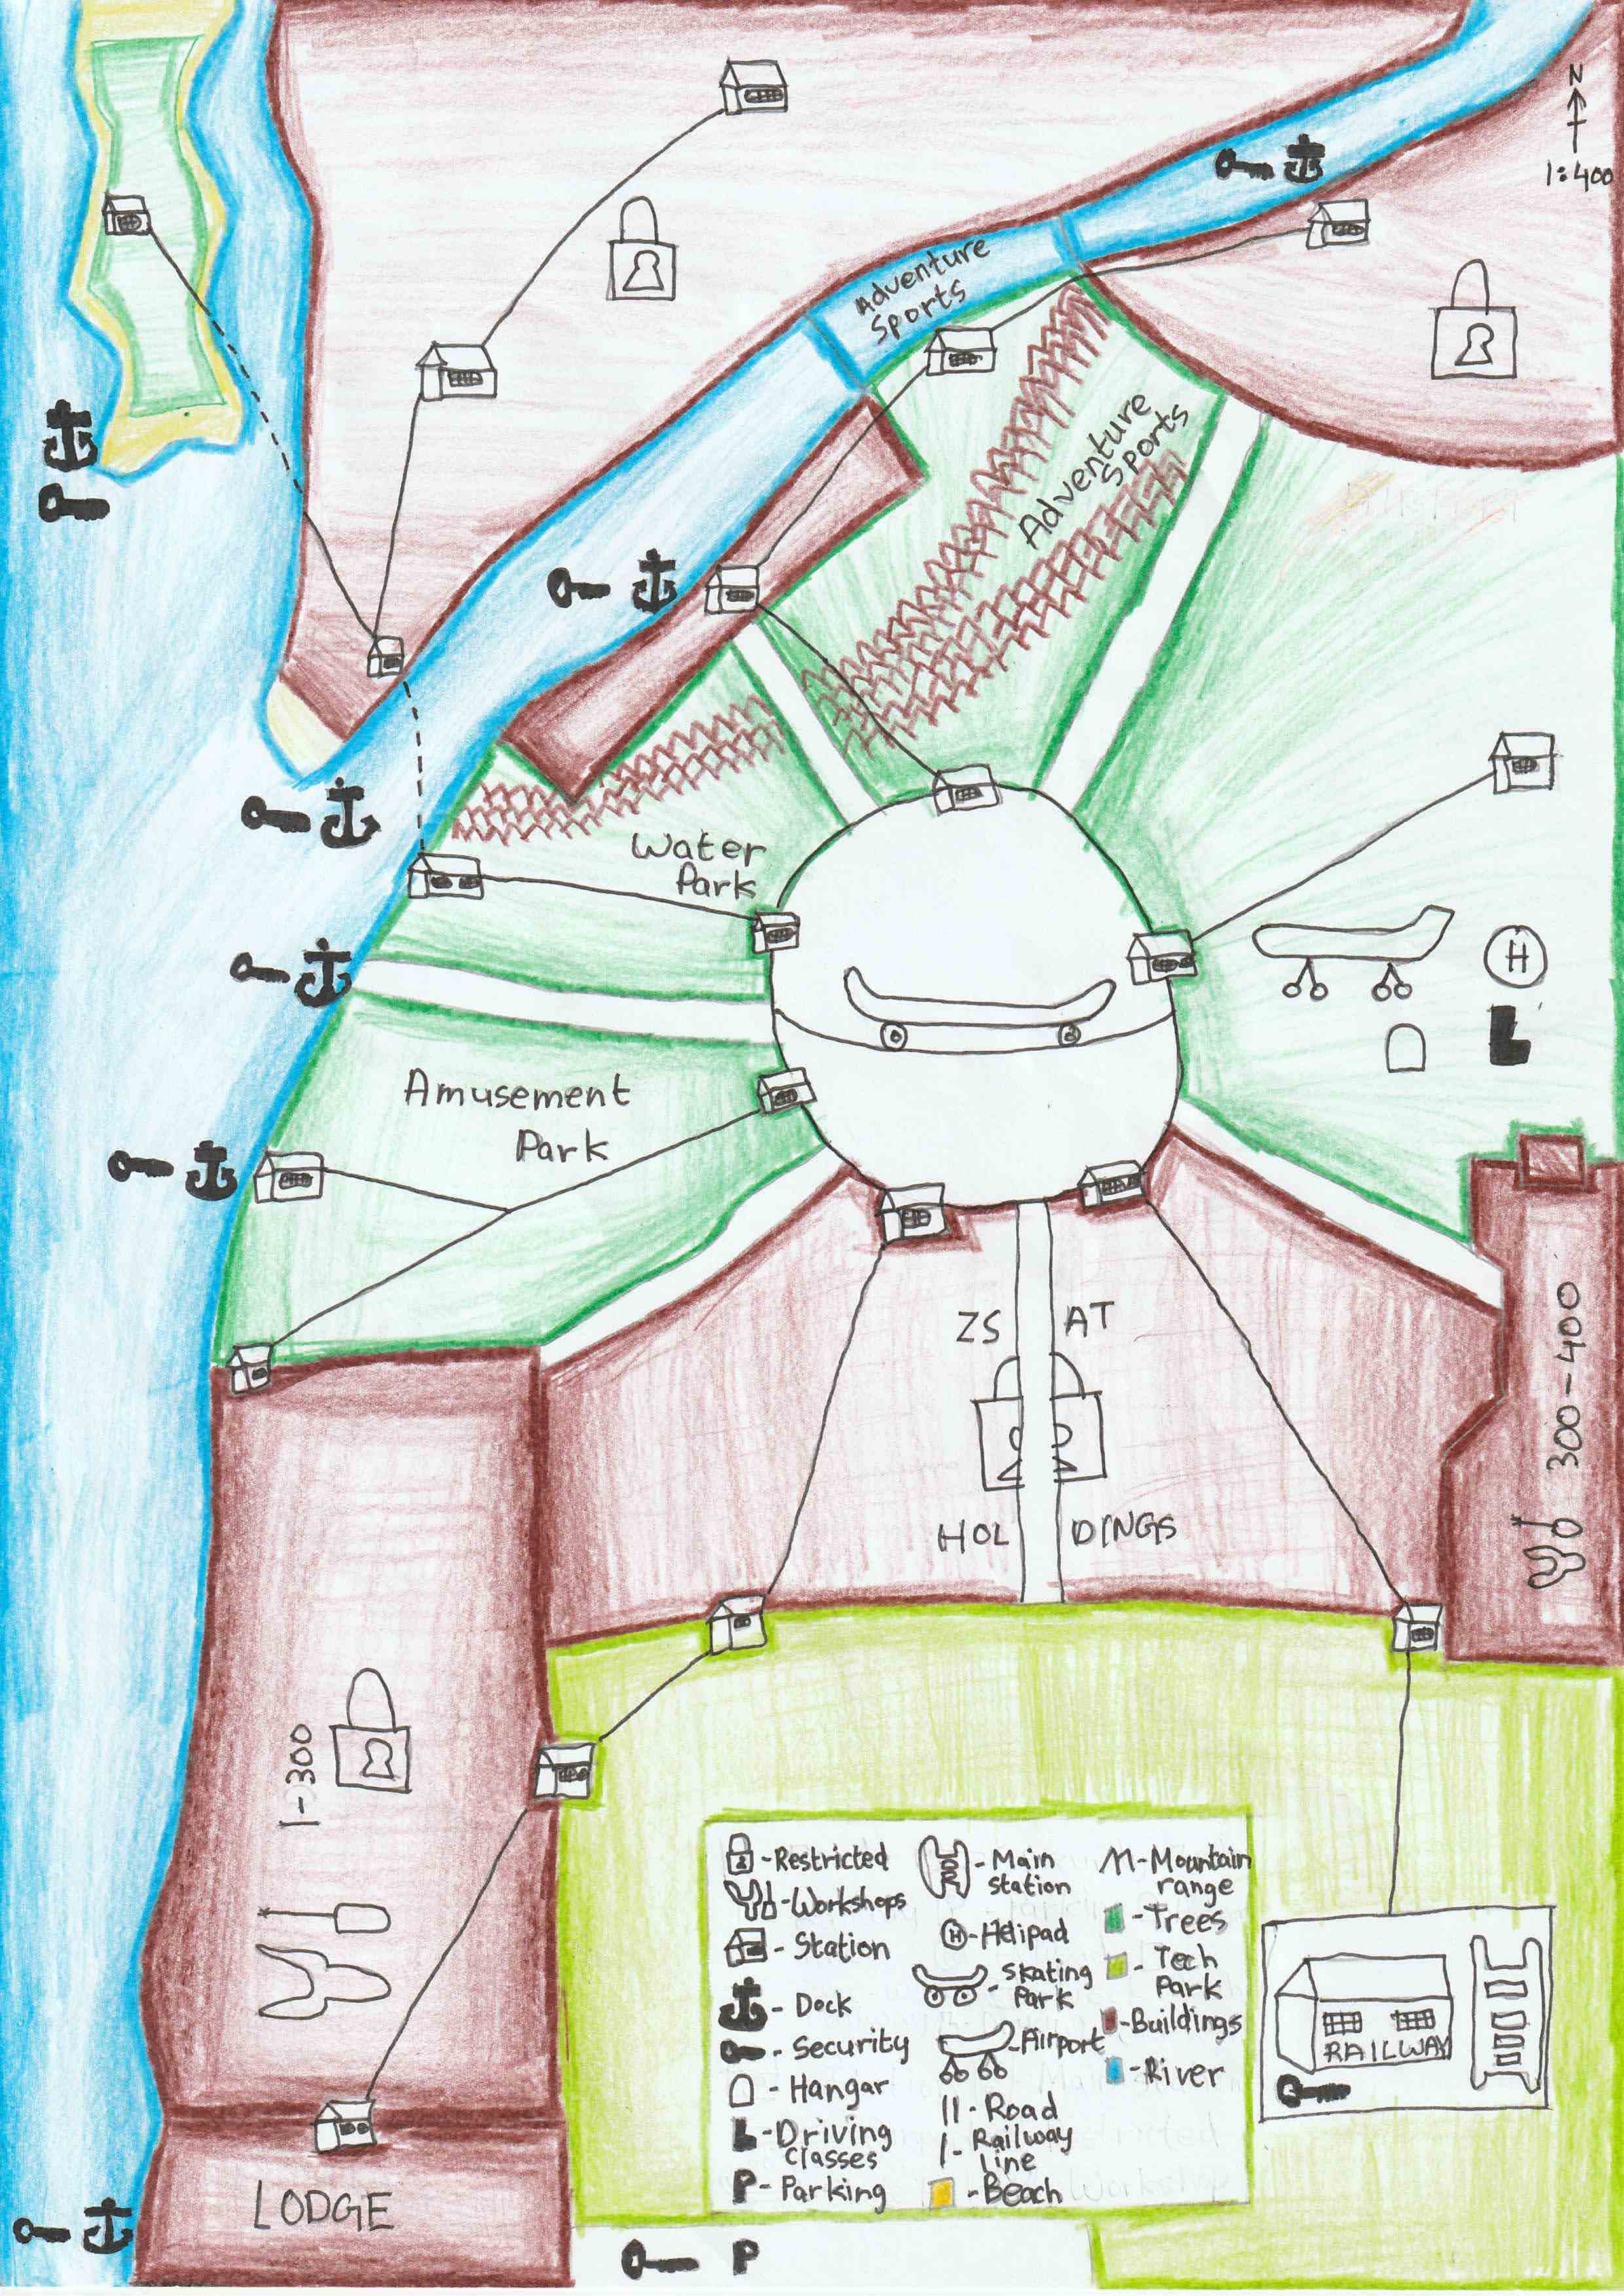 N
1:400
Adventure
Sports
Adventure
Sports
Water
Park
H
L
Amusement
Park
ZS AT
HOL DINGS
300-400
1-300
LODGE
RAILWAY
P
-Restricted
-Workshops
- Station
- Dock
- Security
- Hangar
L-Driving
classes
P- Parking
- Main
station
H-Helipad
- Skating
Park
-Airport
||- Road
|- Railway
Line
- Beach
-Mountain
range
- Trees
- Tech
Park
-Buildings
-River